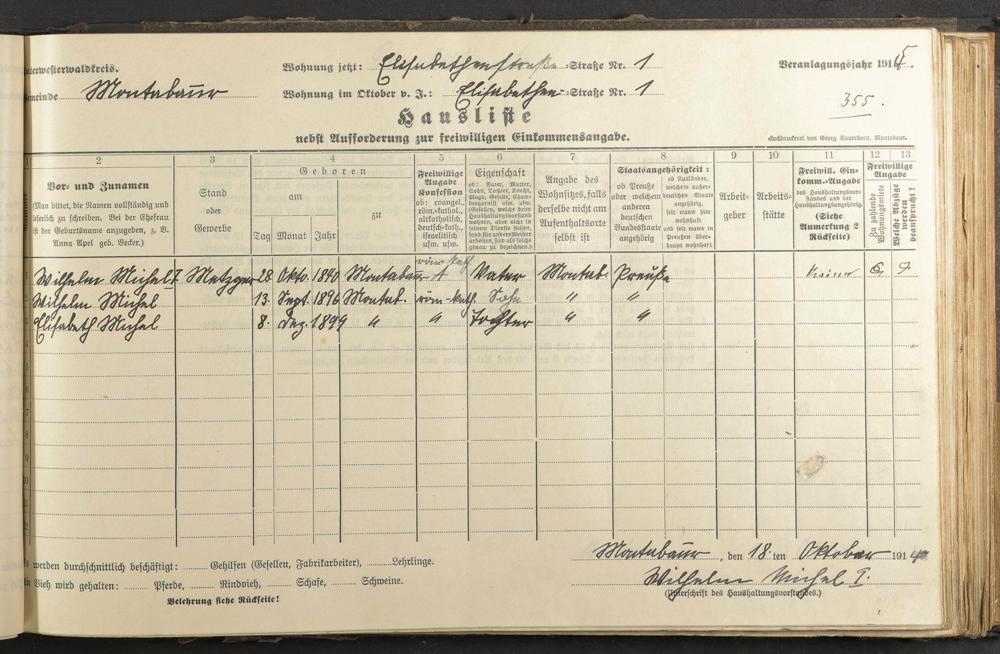 nterwesterwaldkreis. Wohnung jetzt: Elisabethenstraße Straße Nr. 1 Veranlagungsjahr 1915.
emeinde Montabaur Wohnung im Oktober v. J.: Elisabethen Straße Nr. 1 355.
Hausliste
nebst Aufforderung zur freiwilligen Einkommensangabe.
Buchdruckerei von Georg Sauerborn, Montabaur.
1 2 3 4 5 6 7 8 9 10 11 12 13
Vor- und Zunamen
(Man bittet, die Namen vollständig und
leserlich zu schreiben. Bei der Ehefrau
ist der Geburtsname anzugeben, z. B.
Anna Apel geb. Becker.)
Stand
oder
Gewerbe
Geboren
am
zu
Tag Monat Jahr
Freiwillige
Angabe
Konfession
ob: evangel.,
röm.-kathol.,
altkatholisch,
deutsch-kath.,
israelitisch
usw. usw.
Eigenschaft
ob: Vater, Mutter,
Sohn, Tochter, Knecht,
Magd, Geselle, Cham-
bregarnist usw. usw.
Angabe des
Wohnsitzes, falls
derselbe nicht am
Aufenthaltsorte
selbst ist
Staatsangehörigkeit:
ob Preuße
oder welchem
anderen
deutschen
Bundesstaate
angehörig
ob Ausländer,
welchem außer-
deutschen Staate
angehörig,
seit wann hier
wohnhaft
und seit wann in
Preußen über-
haupt wohnhaft
Arbeit-
geber
Arbeits-
stätte
Freiwill. Ein-
komm.-Angabe
des Haushaltungsvor-
standes und der
Haushaltungsangehörig.
(Siehe
Anmerkung 2
Rückseite)
Freiwillige
Angabe
Zu zahlende
Wohnungsmiete
Welche Abzüge
werden
beansprucht?
Wilhelm Michel I Metzger 28. Okto. 1840 Montabaur röm. kath. Vater Montab. Preuße
Wilhelm Michel 13. Sept. 1896 Montab. röm-kath. Sohn " "
Elisabeth Michel 8. Dez. 1899 " " Tochter " "
s werden durchschnittlich beschäftigt: Gehilfen (Gesellen, Fabrikarbeiter), Lehrlinge.
n Vieh wird gehalten: Pferde, Rindvieh, Schafe, Schweine.
Belehrung siehe Rückseite!
Montabaur, den 18 ten Oktober 1914
Wilhelm Michel I.
(Unterschrift des Haushaltungsvorstandes.)